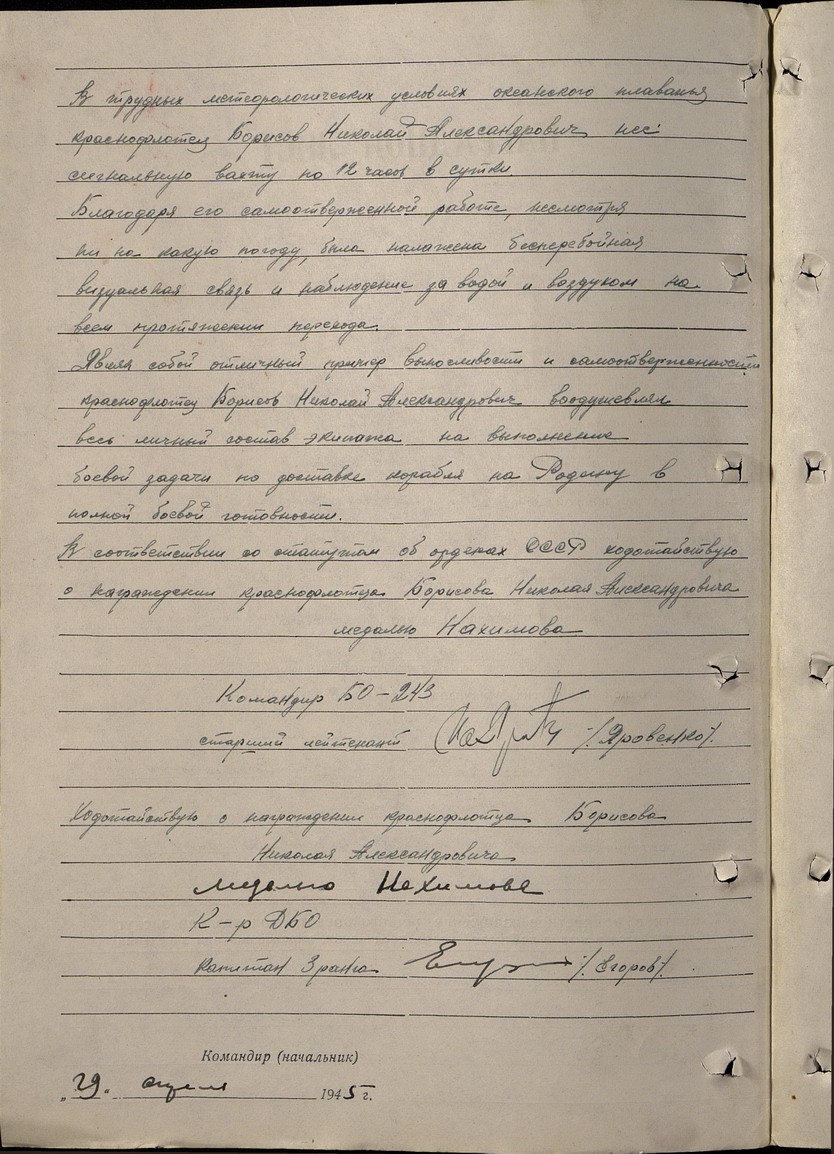 В трудных метеорологических условиях океанского плаванья
краснофлотец Борисов Николай Александрович нес
сигнальную вахту по 12 часов в сутки.
Благодаря его самоотверженной работе, несмотря
ни на какую погоду, была налажена бесперебойная
визуальная связь и наблюдение за водой и воздухом на
всем протяжении перехода.
Являя собой отличный пример выносливости и самоотверженности
краснофлотец Борисов Николай Александрович воодушевлял
весь личный состав экипажа на выполнение
боевой задачи по доставке корабля на Родину в
полной боевой готовности.
В соответствии со статутом об орденах СССР ходотайствую
о награждении краснофлотца Борисова Николая Александровича
медалью Нахимова
Командир БО-243
старший лейтенант /Яровенко/.
Ходотайствую о награждении краснофлотца Борисова
Николая Александровича
медалью Нахимова
К-р ДБО
капитан 3 ранга /Егоров/.
Командир (начальник)
„29“ апреля 1945 г.